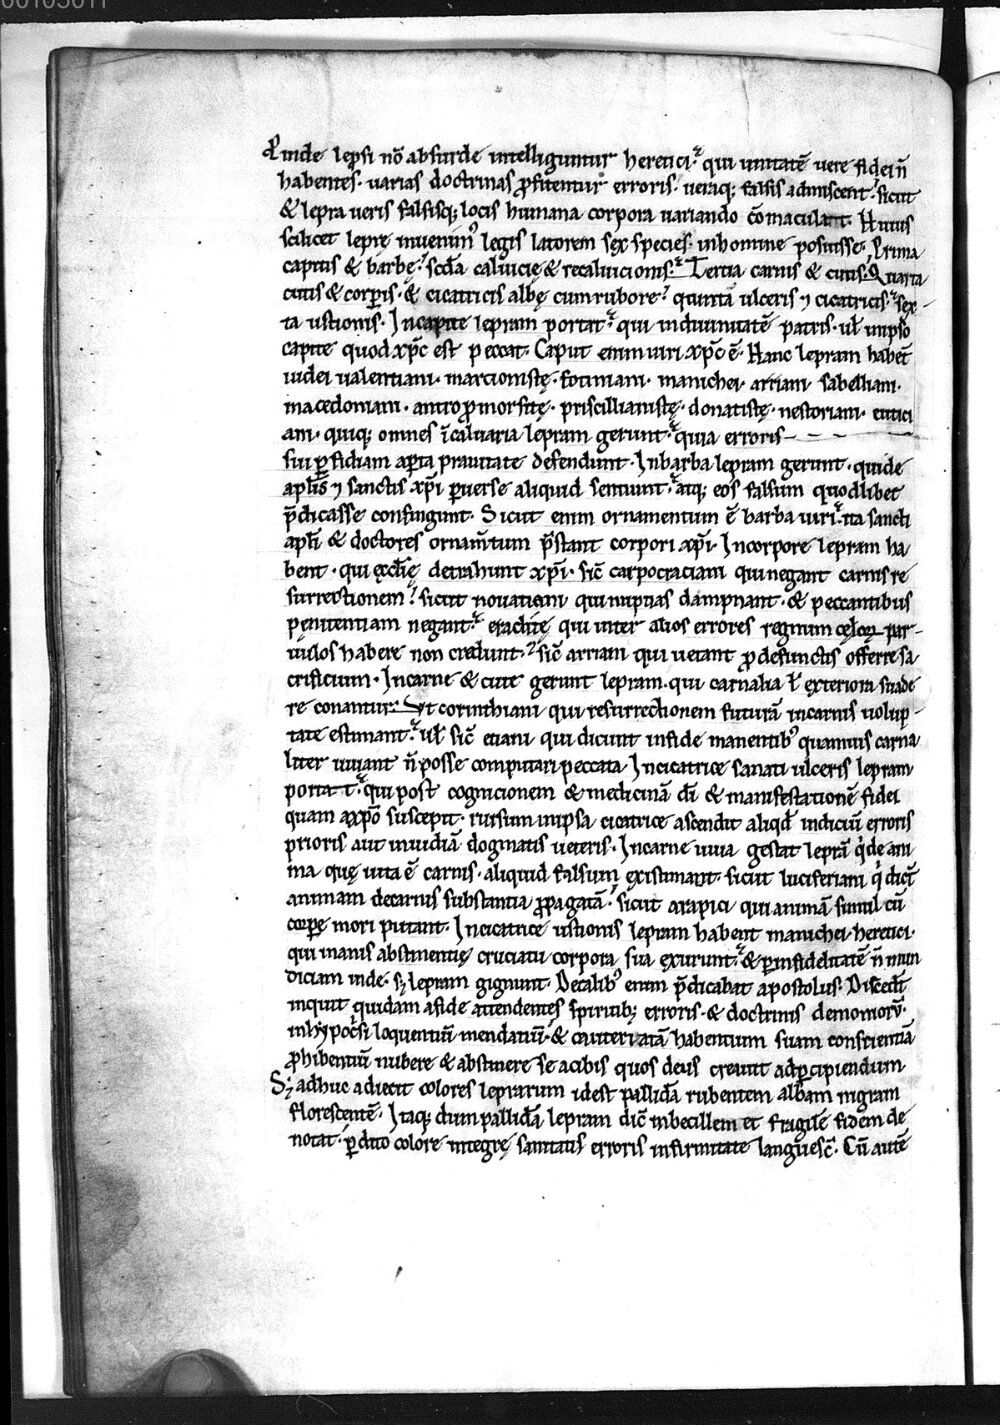 Proinde lepsi nō absurde intelliguntur heretici· qui unitatē vere fidei n̄
habentes· varias doctrinas ꝓfitentur erroris· veraq; falsis admiscent· sicut
& lepra veris falsisq; locis humana corpora variando cōmaculant· Huius
scilicet leprę invenim᾽ legis latorem sex species· in homine posuisse· Prima
capitis & barbę· scd̄a caluicię & recaluicionis· Tertia carnis & cutis· Quarta
cutis & corꝑis· & cicatricis albę cum rubore· quinta ulceris ⁊ cicatricis· sex-
ta ustionis· In capite lepram portat· qui in diuinitatē patris· ul̄ in ipso
capite quod xp̄c est peccat· Caput enim uiri xp̄c ē· Hanc lepram habet̄
iudei valentiani· marcionistę· fotiniani· manichei· arriani· sabelliani·
macedoniani· antropomorfitę· priscillianistę· donatistę· nestoriani· eutici
ani· quiq; omnes ī caluaria lepram gerunt· quia erroris
sui ꝑfidiam aꝑta prauitate defendunt· In barba lepram gerunt· qui de
apl̄is ⁊ sanctis xp̄i ꝑuerse aliquid sentiunt· atq; eos falsum quodlibet
p̄dicasse confingunt· Sicut enim ornamentum ē barba uiri· ita sancti
apl̄i & doctores ornam̄tum p̄stant corpori xp̄i· In corpore lepram ha
bent· qui ęccl̄ię detrahunt xp̄i· sic̄ carpocraciani qui negant carnis re
surrectionem· sicut nouatiani qui nuptias dampnant· & peccantibus
penitentiam negant· erachitę qui inter alios errores regnum cęloꝝ par-
uulos habere non credunt· sic̄ arriani qui uetant ꝓ defunctis offerre sa
crificium· In carne & cute gerunt lepram· qui carnalia ł exteriora suade
re conantur· Ut corinthiani qui resurrectionem futurā in carnis uolup-
tate estimant· ul̄ sic̄ etiani qui dicunt in fide manentib᾽ quamuis carna
liter uiuant n̄ posse computari peccata· In cicatrice sanati ulceris lepram
portat· qui post cognicionem & medicinā di̅ & manifestationē fidei
quam a xp̄o suscepit· rursum in ipsa cicatrice ascendit aliqd̄ indiciū erroris
prioris aut inuidiā dogmatis ueteris· In carne uiua gestat leprā q̇ de ani
ma quę uita ē carnis· aliquid falsum existimant· sicut luciferiani q̇ dict̄
animam de carnis substantia ꝓpagatā· sicut arapici qui animā simul cū
corꝑe mori putant· In cicatrice ustionis lepram habent manichei heretici·
qui inanis abstinentię cruciatu corpora sua exurunt· & ꝑ infidelitatē n̄ mun
diciam inde· s; lepram gignunt· De talib᾽ enim p̄dicabat apostolus· Discedēt
inquit quidam a fide attendentes spiritib; erroris· & doctrinis demonioꝝ·
in hypoc̓si loquentiū mendatiū· & cauteriatā habentium suam conscientiā
ꝓhibentiū nubere & abstinere se a cibis quos deus creauit ad ꝑcipiendum
S; adhuc adiecit colores leprarum id est pallidā rubentem albam nigram
florescentē· Itaq; dum pallidā lepram dic̄ inbecillem et fragilē fidem de
notat· ꝑdito colore integrę sanitatis erroris infirmitate languesc̄· Cū autē